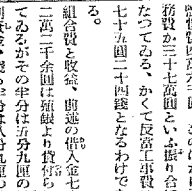 務費が三十七萬圓といふ振り合
なつてゐる、かくて反當工事費
七十五圓二十四錢となるわけで
る。
組合費と收益、前述の借入金七
二萬二千余圓は殖銀より貸付ら
てゐるがその半分は五分九厘の